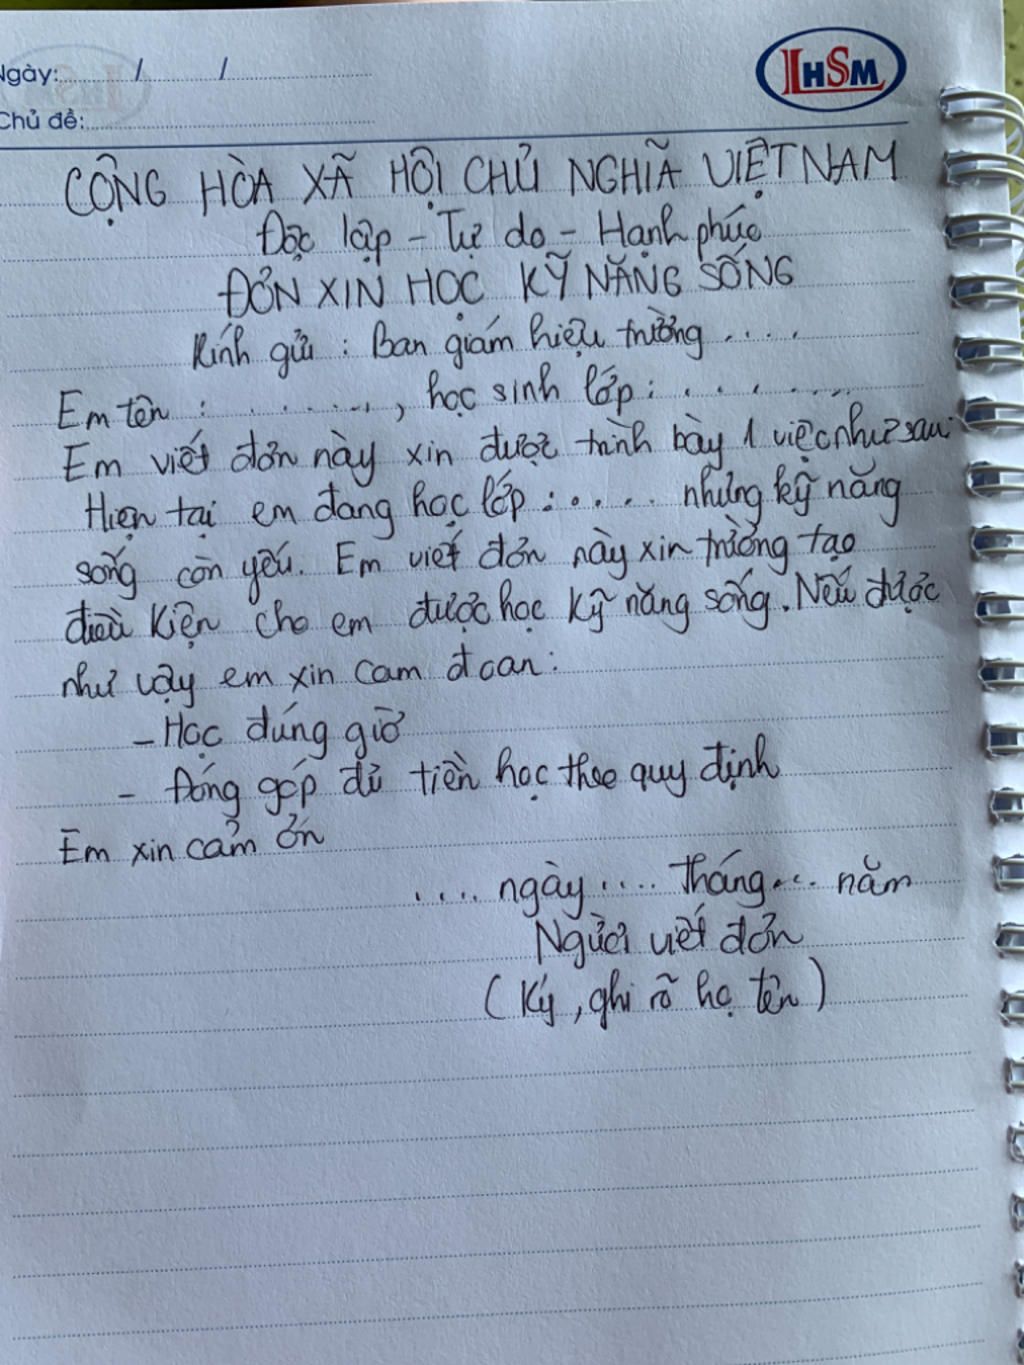 Ngày: / /
LHSM
Chủ đề:
CỘNG HÒA XÃ HỘI CHỦ NGHĨA VIỆT NAM
Độc lập - Tự do - Hạnh phúc
ĐƠN XIN HỌC KỸ NĂNG SỐNG
Kính gửi : Ban giám hiệu trường ....
Em tên : ......., học sinh lớp: ........
Em viết đơn này xin được trình bày 1 việc như sau:
Hiện tại em đang học lớp :..... nhưng kỹ năng
sống còn yếu. Em viết đơn này xin trường tạo
điều kiện cho em được học kỹ năng sống. Nếu được
như vậy em xin cam đoan:
- Học đúng giờ
- Đóng góp đủ tiền học theo quy định
Em xin cảm ơn
.... ngày .... tháng ... năm
Người viết đơn
(Ký, ghi rõ họ tên)